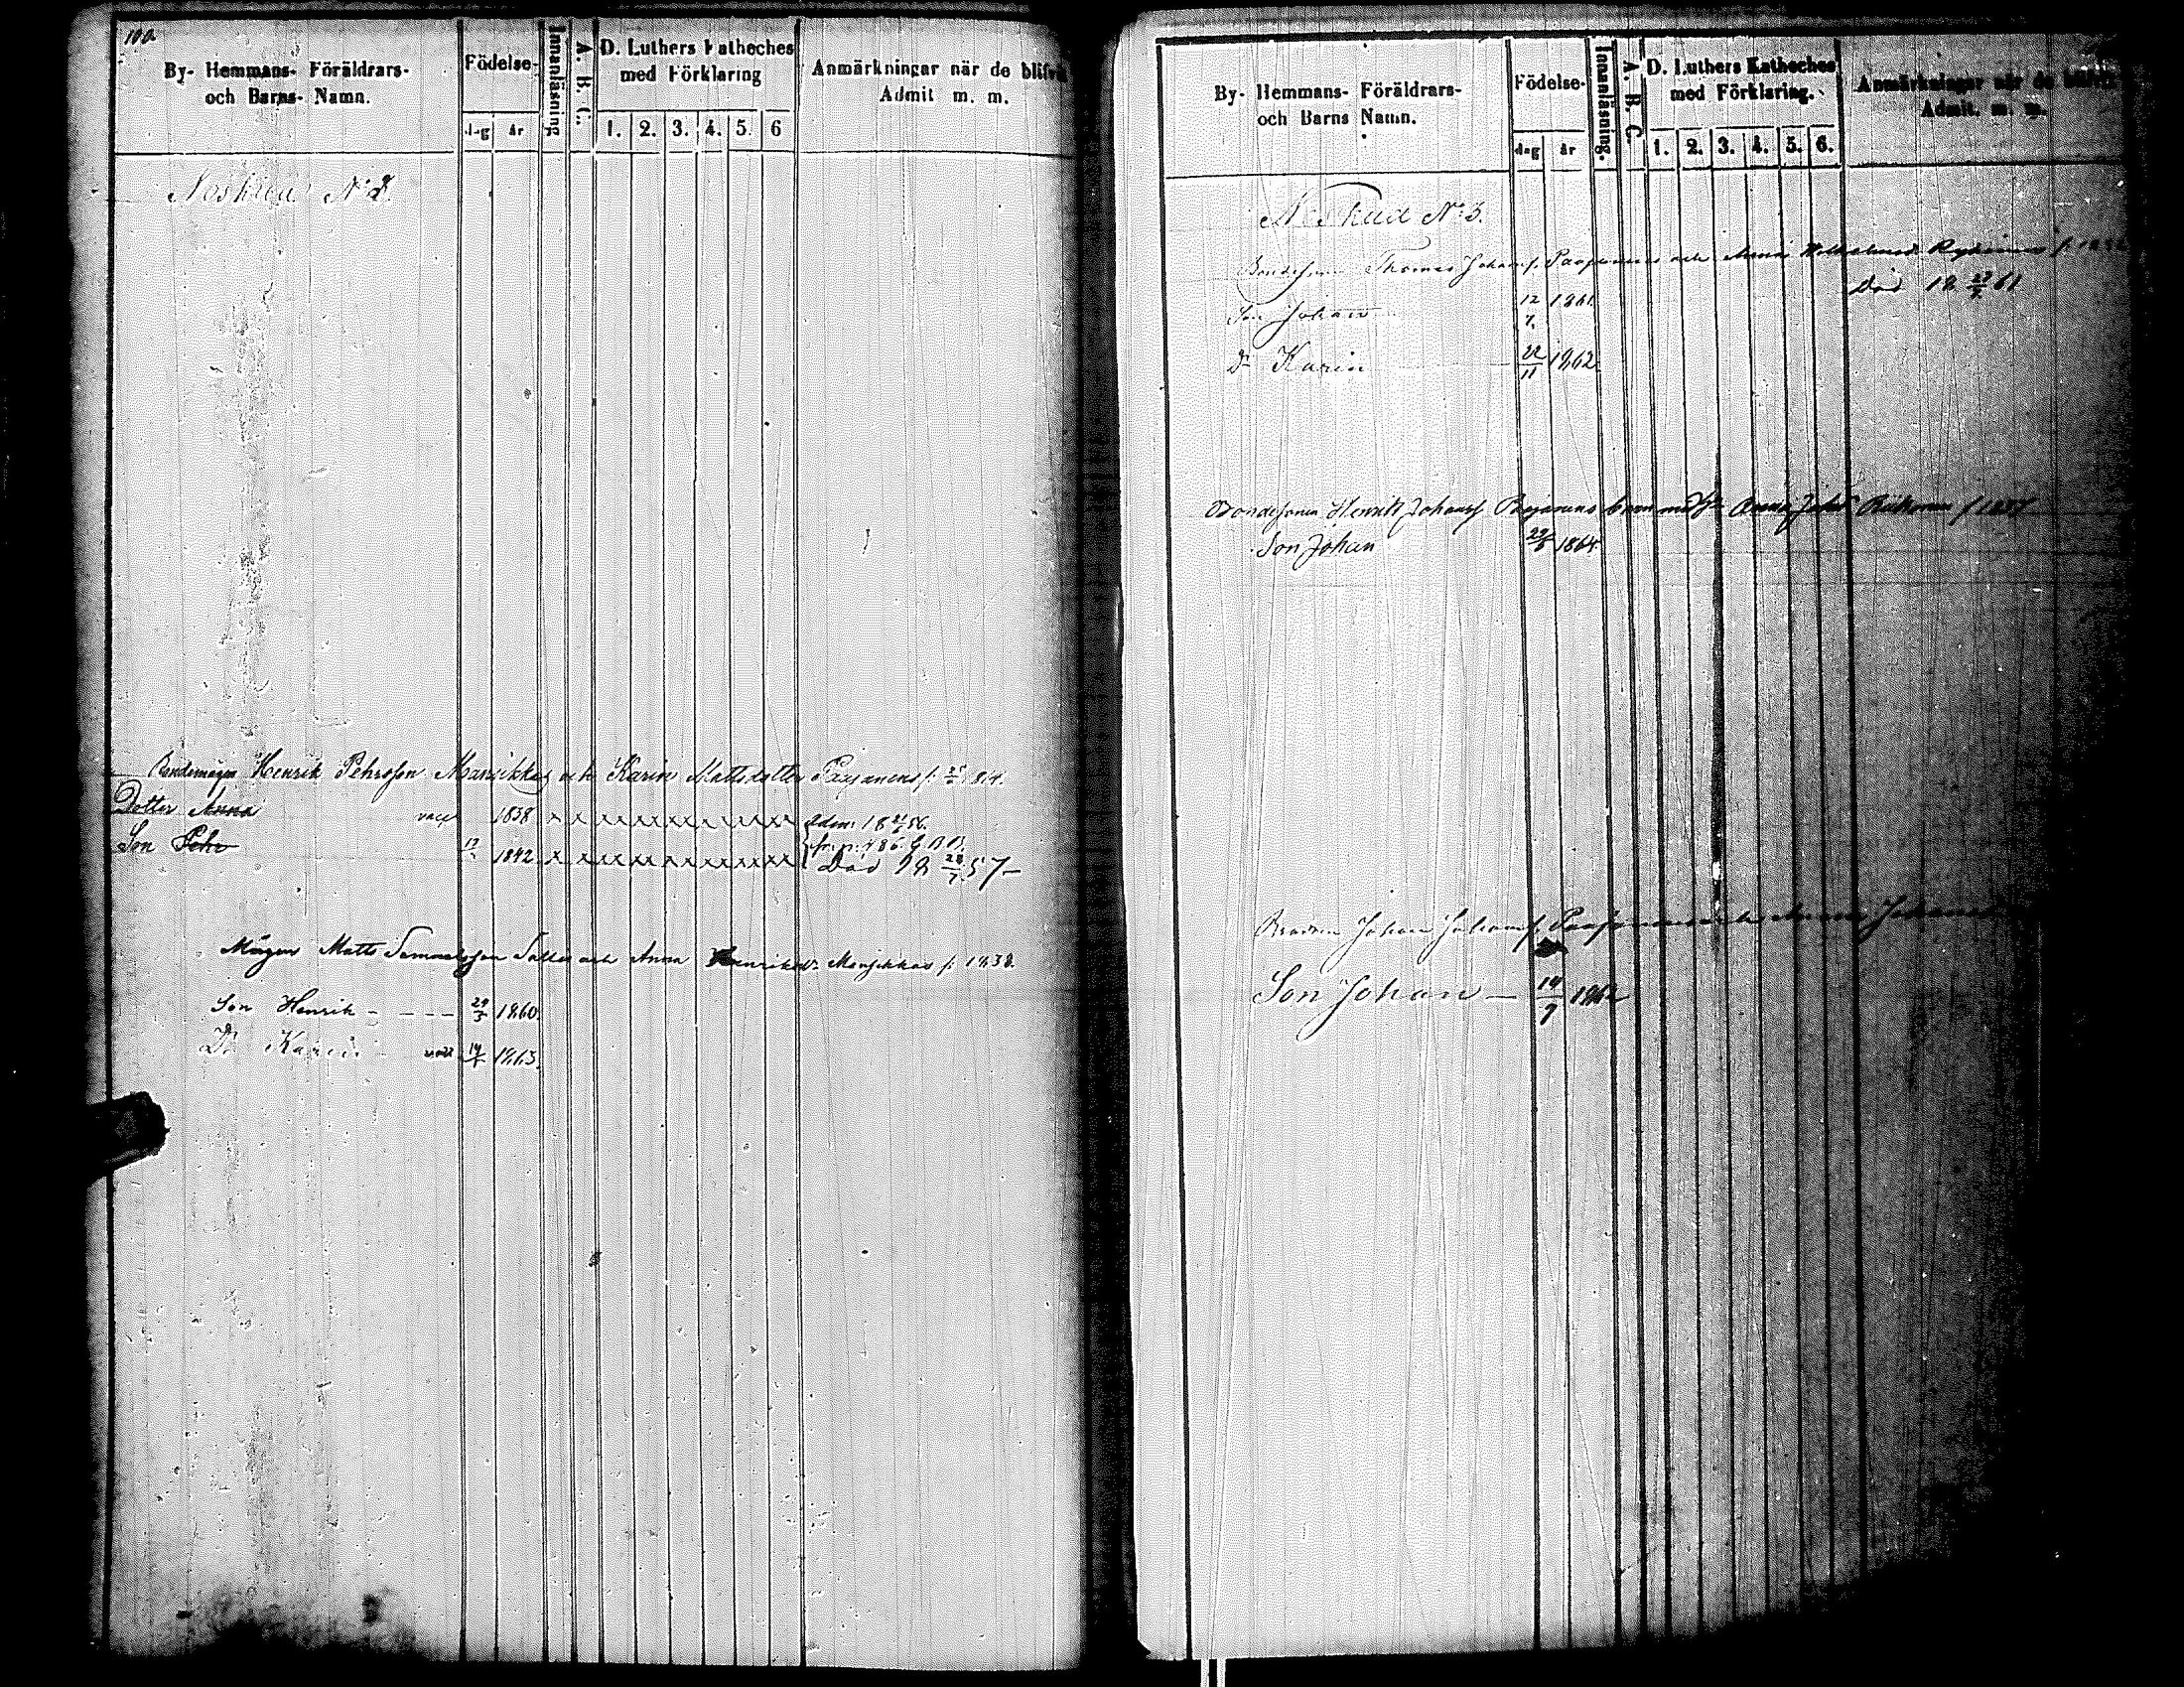 100.
By- Hemmans- Föräldrars-
och Barns- Namn.
Födelse-
dag år
Innanläsning
A. B. C.
D. Luthers Katheches
med Förklaring
1. 2. 3. 4. 5. 6
Anmärkningar när de blifvit
Admit m. m.
No 2.
Bondemågen Henrik Pehrsson Mansikkas och Karin Mattsdotter Paajanens f. 1814.
Dotter Anna vacc 1838 x x x x x x x x x x x x x adm: 18 56.
Son Pehr 1842 x x x x x x x x x x x x x
Död 18 28/7 57
Mågens Matts Samuelsson och Anna Henriksdr Mansikkas f. 1838.
Son Henrik - - - - 29/3 1860.
Dr Karin vacc 1863.
By- Hemmans- Föräldrars-
och Barns Namn.
Födelse-
dag år
Innanläsning.
A. B. C.
D. Luthers Katheches
med Förklaring.
1. 2. 3. 4. 5. 6.
Anmärkningar när de blifvit
Admit. m. m.
No 3.
Bondesonen Thomas Johansf. och Anna
Son Johan 12/7 1861 Död 18 61
Dr Karin 22/11 1862.
Bondesonen Henrik Johansf Paajanens barn med Anna f 1837
Son Johan 1864.
Brodren Johan Johansf. Paajanens och Anna
Son Johan — 19/9 1862